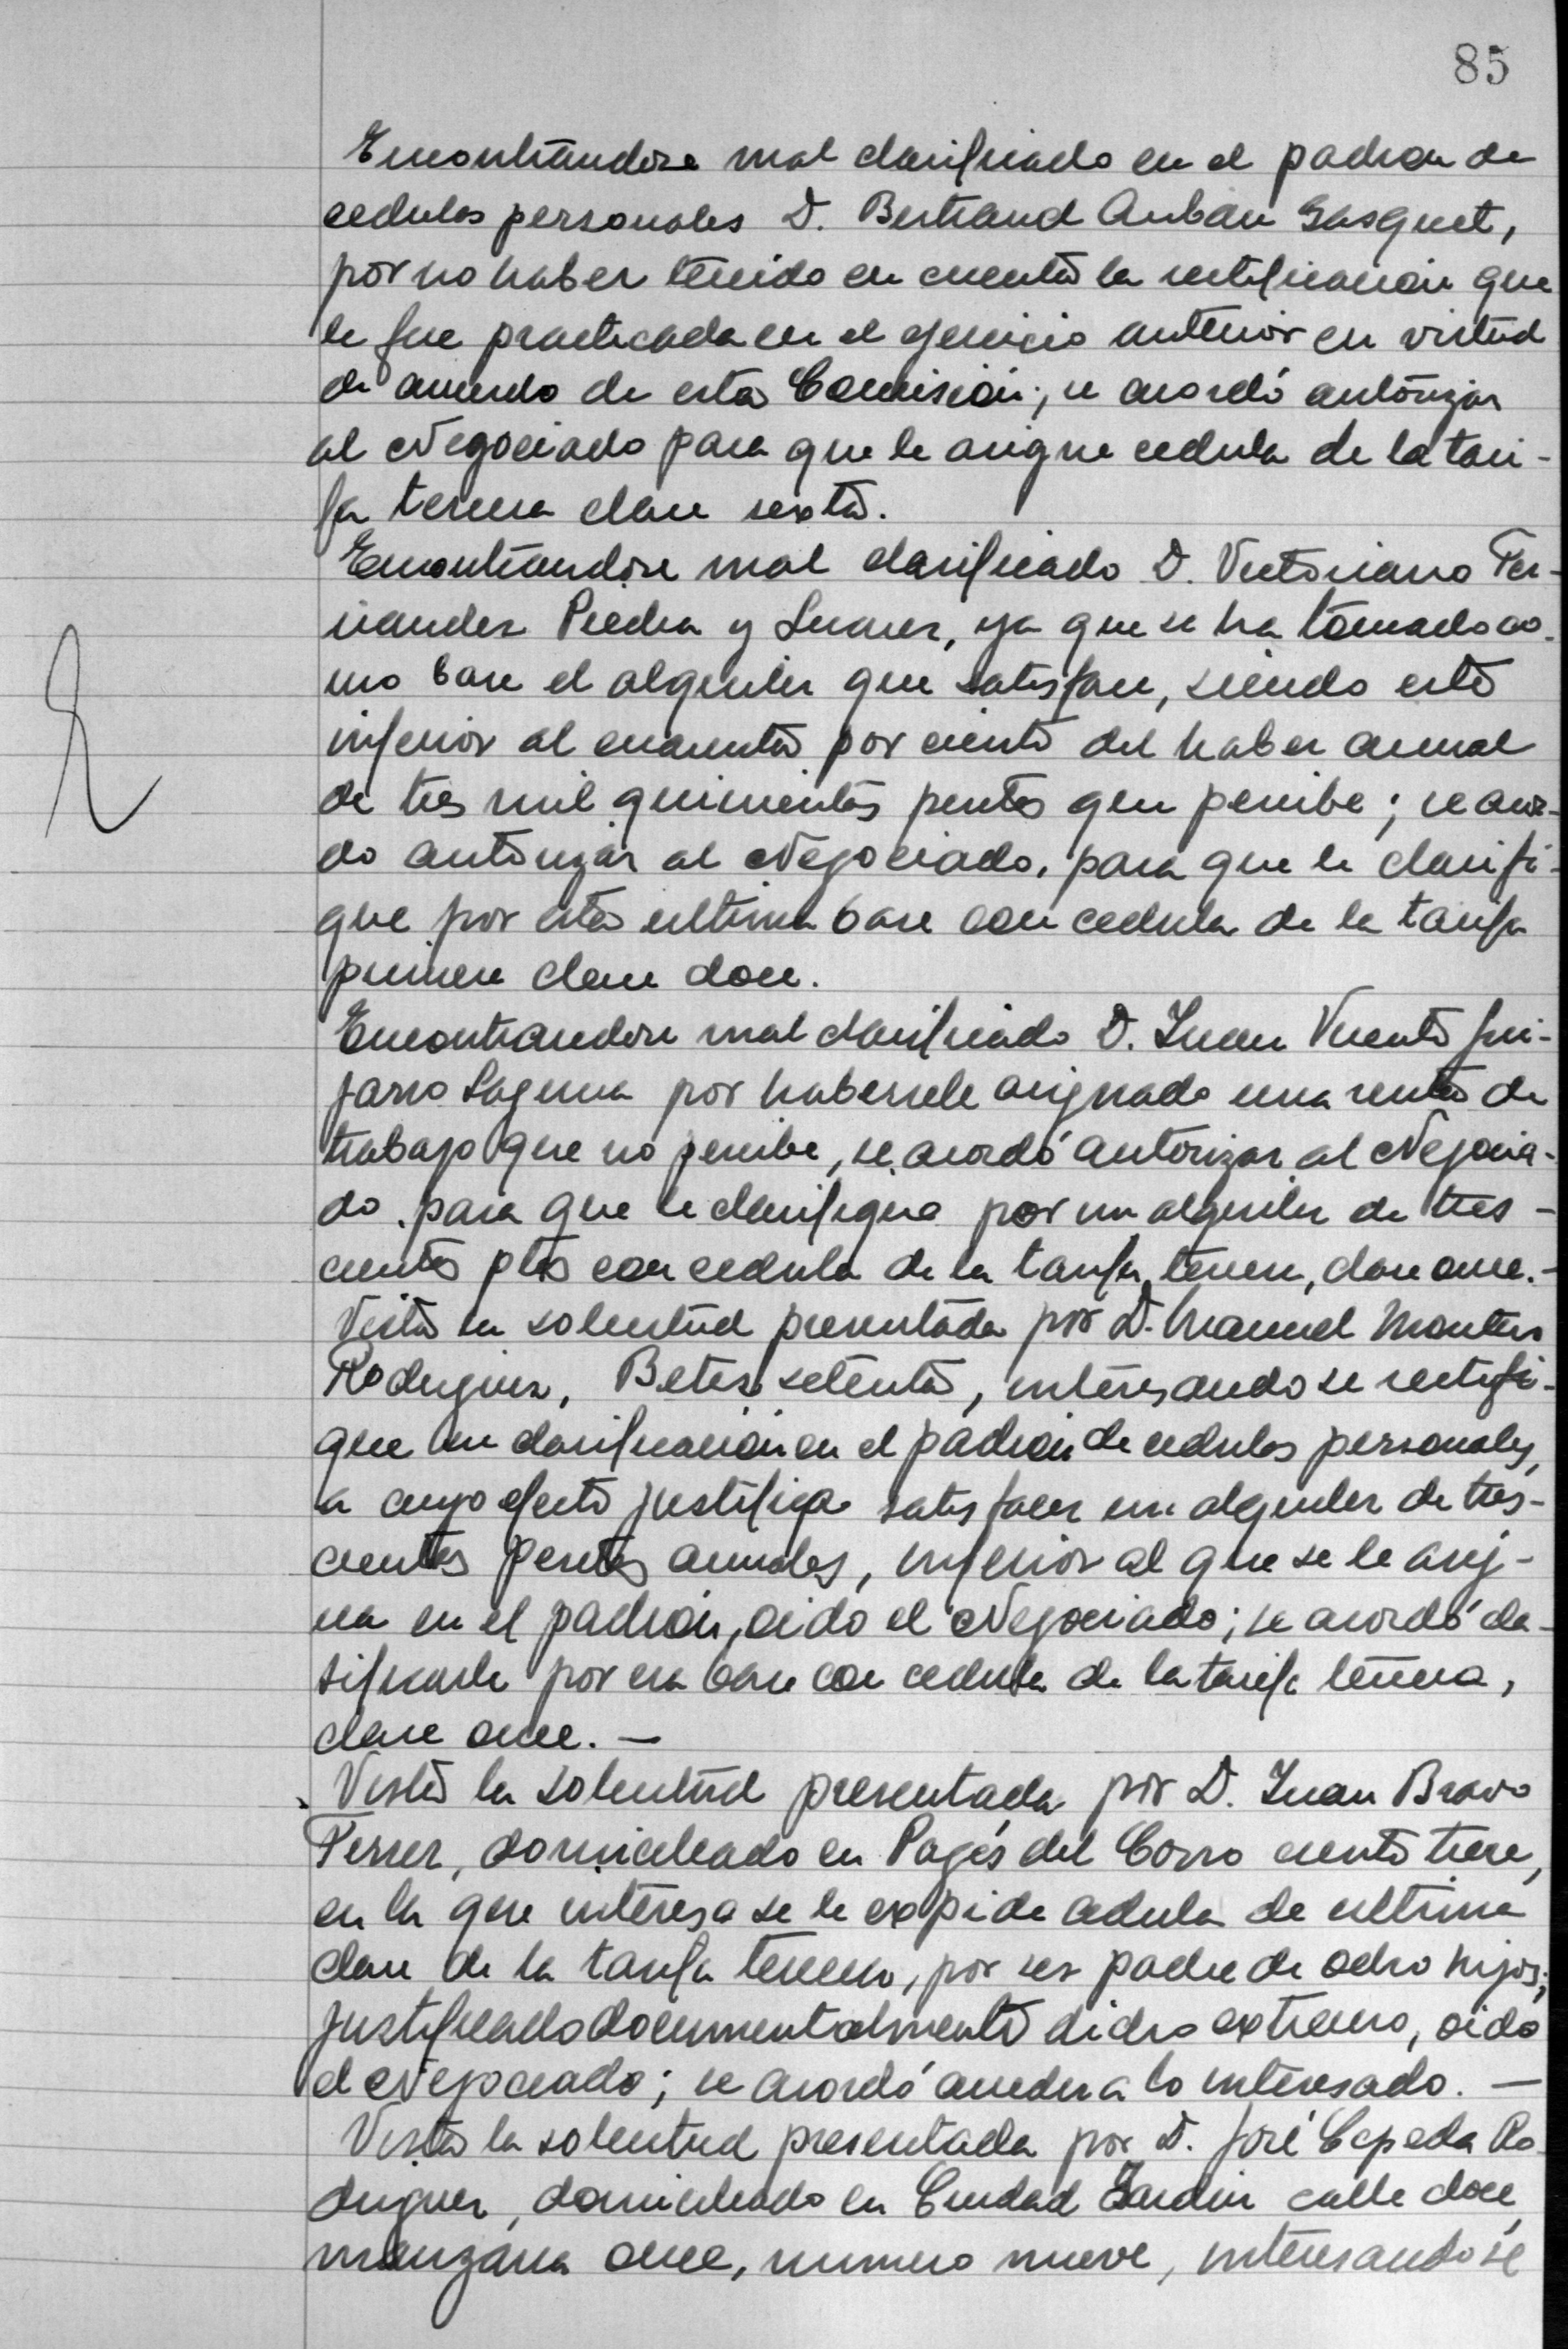 85
Encontrandose mal clasificado en el padron de
cedulas personales D. Bertrand Auban Gasquet,
por no haber tenido en cuenta la rectificacion que
le fue practicada en el ejercicio anterior en virtud
de acuerdo de esta Comisión; se acordó autorizar
al Negociado para que le asigne cedula de la tari-
fa tercera clase sexta.
Encontrandose mal clasificado D. Victoriano Fer-
nandez Piedra y Suarez, ya que se ha tomado co-
mo base el alquiler que satisface, siendo este
inferior al cincuenta por ciento del haber anual
de tres mil quinientas pesetas que percibe; se acor-
do autorizar al Negociado, para que le clasifi-
que por esta ultima base con cedula de la tarifa
primera clase doce.
Encontrandose mal clasificado D. Juan Vicente Gui-
jarro Laguna por habersele asignado una renta de
trabajo que no percibe, se acordó autorizar al Negocia-
do para que le clasifique por un alquiler de tres-
cientas ptas con cedula de la tarifa tercera, clase once.-
Vista la solicitud presentada por D. Manuel Montero
Rodriguez, Betis setenta, interesando se rectifi-
que su clasificación en el padrón de cedulas personales,
a cuyo efecto justifica satisfacer un alquiler de tres-
cientas pesetas anuales, inferior al que se le asig-
na en el padrón, oido el Negociado; se acordó cla-
sificarle por esa base con cedula de la tarifa tercera,
clase once. —
Vista la solicitud presentada por D. Juan Bravo
Ferrer, domiciliado en Pagés del Corro ciento trece,
en la que interesa se le expida cedula de ultima
clase de la tarifa tercera, por ser padre de ocho hijos;
justificado documentalmente dicho extremo, oido
el Negociado; se acordó acceder a lo interesado. —
Vista la solicitud presentada por D. José Cepeda Ro-
driguez, domiciliado en Ciudad Jardin calle doce,
manzana once, numero nueve, interesando se